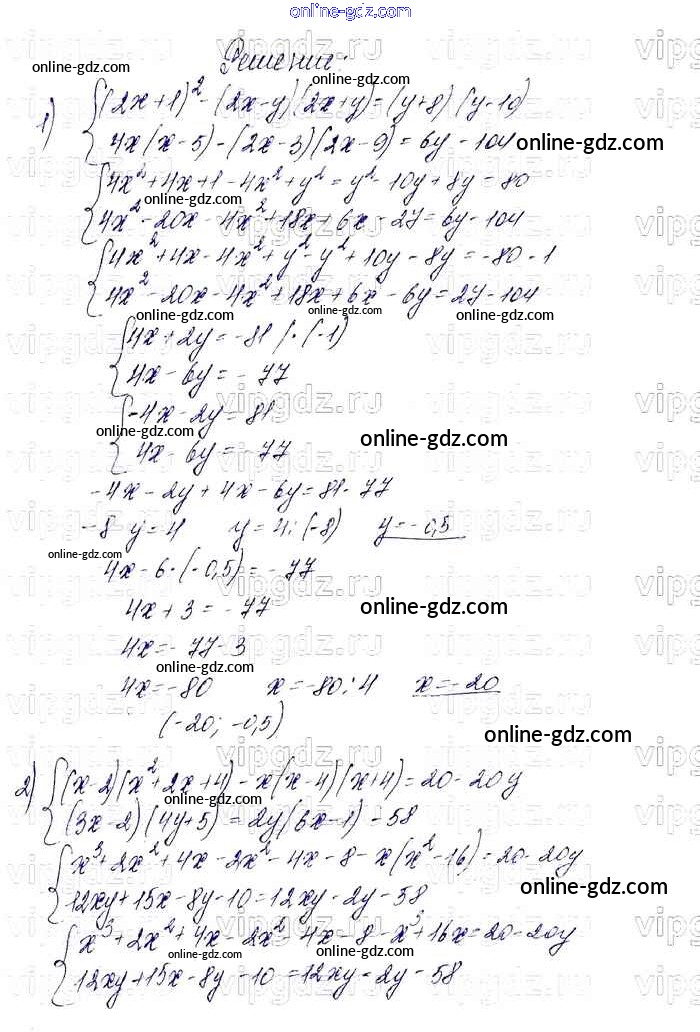 online-gdz.com
Решение:
online-gdz.com online-gdz.com
1) {(2x+1)² - (2x-y)(2x+y) = (y+8)(y-10)
4x(x-5) - (2x-3)(2x-9) = 6y - 104 online-gdz.com
{4x²+4x+1-4x²+y² = y²-10y+8y=80
online-gdz.com
4x²-20x-4x²+18x+6x-27=6y-104
{4x²+4x-4x²+y²-y²+10y-8y=-80-1
4x²-20x-4x²+18x+6x-6y=27-104
online-gdz.com online-gdz.com online-gdz.com
{4x+2y=-81 |·(-1)
4x-6y=-77
{-4x-2y=81
online-gdz.com online-gdz.com
4x-6y=-77
-4x-2y+4x-6y=81-77
-8y=4 y=4:(-8) y=-0,5
online-gdz.com
4x-6·(-0,5)=-77
4x+3=-77 online-gdz.com
4x=-77-3
online-gdz.com
4x=-80 x=-80:4 x=-20
(-20; -0,5) online-gdz.com
2) {(x-2)(x²+2x+4)-x(x-4)(x+4)=20-20y
online-gdz.com
(3x-2)(4y+5)=2y(6x-1)-58
{x³+2x²+4x-2x²-4x-8-x(x²-16)=20-20y
12xy+15x-8y-10=12xy-2y-58 online-gdz.com
{x³+2x²+4x-2x²-4x-8-x³+16x=20-20y
online-gdz.com online-gdz.com
12xy+15x-8y-10=12xy-2y-58
online-gdz.com